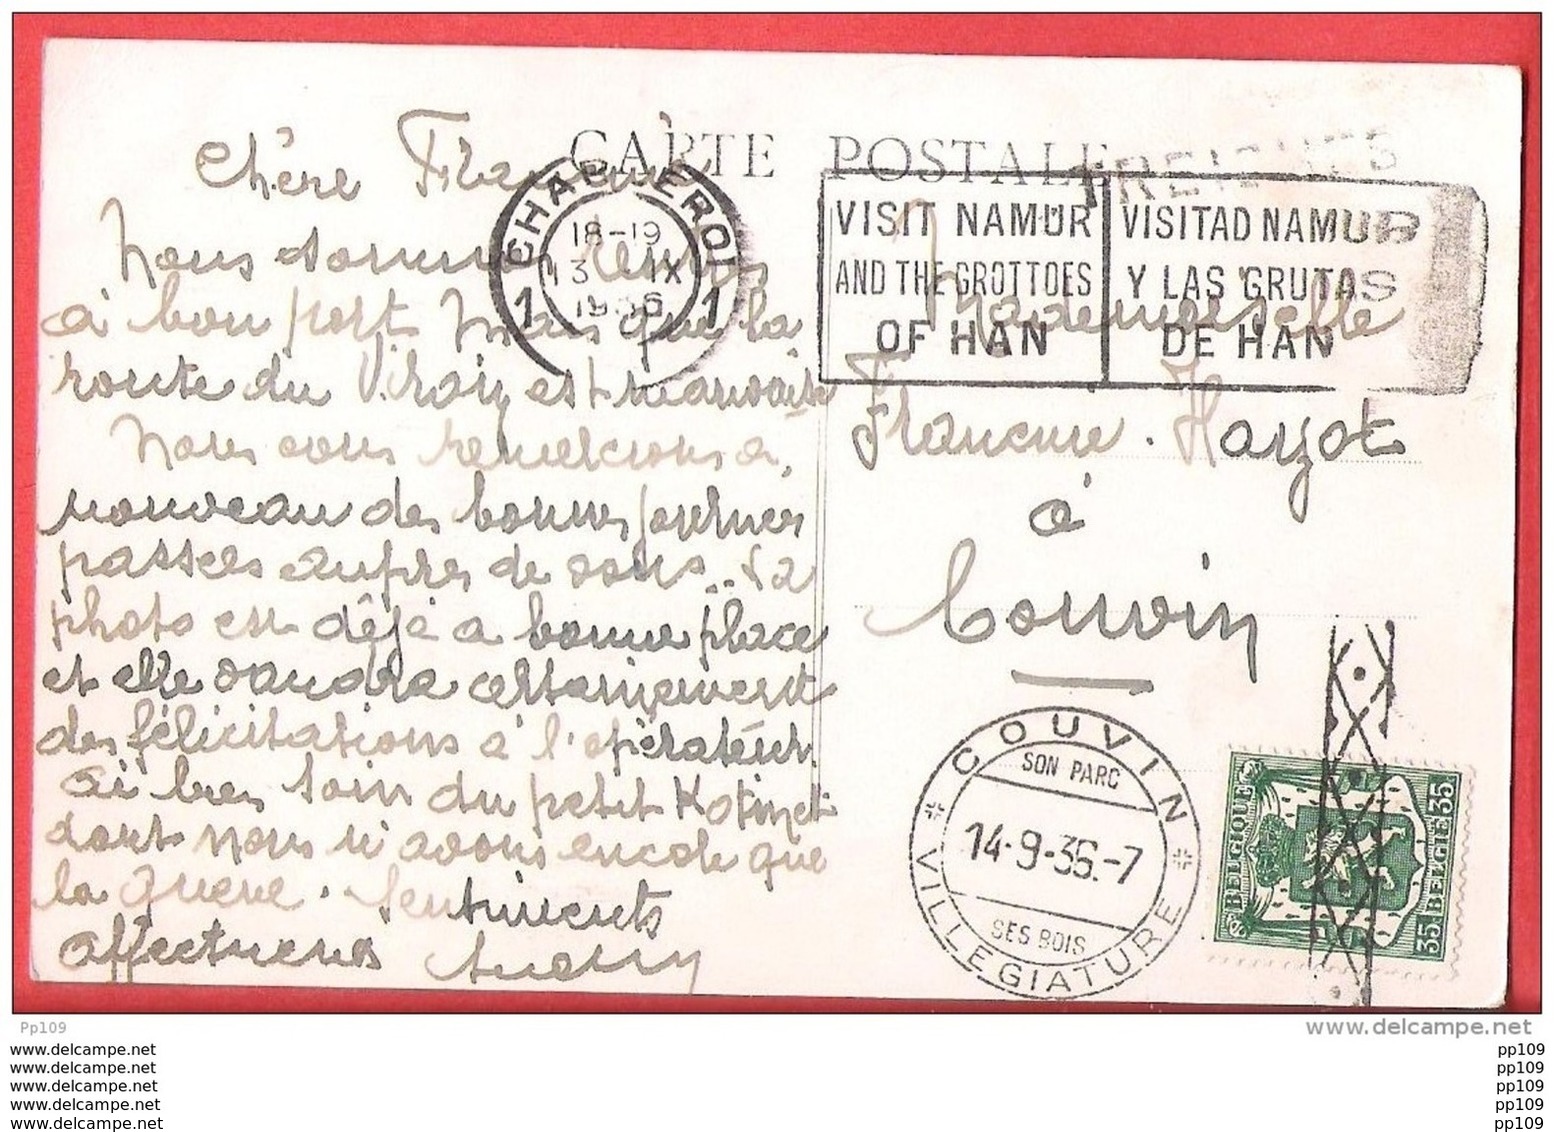 CARTE POSTALE
TREIGNES
CHARLEROI
18-19
13 IX
1936
1 1
VISIT NAMUR
AND THE GROTTOES
OF HAN
VISITAD NAMUR
Y LAS GRUTAS
DE HAN
Chère Francine
Nous sommes
à bon port mais que la
route du Viroin est mauvaise
Nous vous remercions à
nouveau des bonnes journées
passées auprès de vous. La
photo est déjà à bonne place
et elle vaudra certainement
des félicitations à l'opérateur.
ai bien soin du petit
dont nous n'avons encore que
la queue. Sentiments
affectueux
Mademoiselle
Francine Hayot
à
Couvin
COUVIN
SON PARC
14-9-36.-7
SES BOIS
VILLEGIATURE
BELGIQUE 35
35 BELGIE
Pp109
delcampe.net
www.delcampe.net pp109
www.delcampe.net pp109
www.delcampe.net pp109
www.delcampe.net pp109
www.delcampe.net pp109